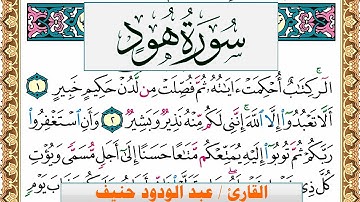 سُورَةُ هُودٍ
الٓر ۚ كِتَٰبٌ أُحْكِمَتْ ءَايَٰتُهُۥ ثُمَّ فُصِّلَتْ مِن لَّدُنْ حَكِيمٍ خَبِيرٍ ١
أَلَّا تَعْبُدُوٓا۟ إِلَّا ٱللَّهَ ۚ إِنَّنِى لَكُم مِّنْهُ نَذِيرٌ وَبَشِيرٌ ٢ وَأَنِ ٱسْتَغْفِرُوا۟
رَبَّكُمْ ثُمَّ تُوبُوٓا۟ إِلَيْهِ يُمَتِّعْكُم مَّتَٰعًا حَسَنًا إِلَىٰٓ أَجَلٍ مُّسَمًّى وَيُؤْتِ
كُلَّ ذِى عَلَيْكُمْ عَذَابَ يَوْمٍ
القارئ / عبد الودود حنيف